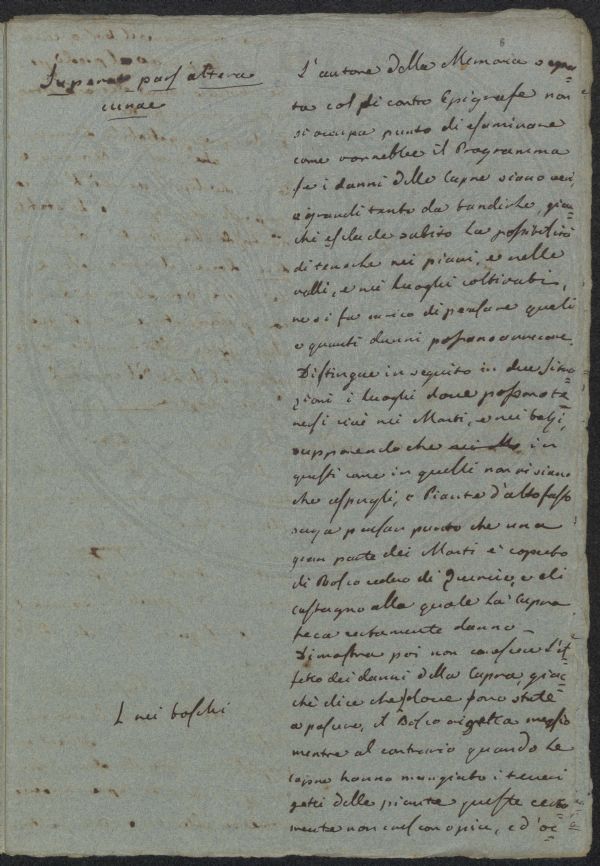 Superat pars altera
curae
L'autore della Memoria segna-
ta col di contro Epigrafe non
si occupa punto di esaminare
come vorrebbe il Programma
se i danni delle Capre siano veri,
e grandi tanto da bandirle, giac-
chè esclude subito la possibilità
di tenerle nei piani, e nelle
valli, e nei luoghi coltivabili,
ne si fa carico di pensare quali
e quanti danni possano arrecare.
Distingue in seguito in due situa-
zioni i luoghi dove possono te-
nersi cioè nei Monti, e nei balzi,
supponendo che in
questi come in quelli non vi siano
che cespugli, e Piante d'alto fusto
senza pensar punto che una
gran parte dei Monti è coperto
di Bosco ceduo di Quercie, e di
castagno alla quale la Capra
reca certamente danno.
Dimostra poi non conoscere l'ef-
fetto dei danni della Capra, giac-
chè dice che dove sono state
a pascere, il Bosco rigetta meglio
mentre al contrario quando le
capre hanno mangiato i teneri
getti delle piante queste certa-
mente non crescono più, e d'oc-
L nei boschi